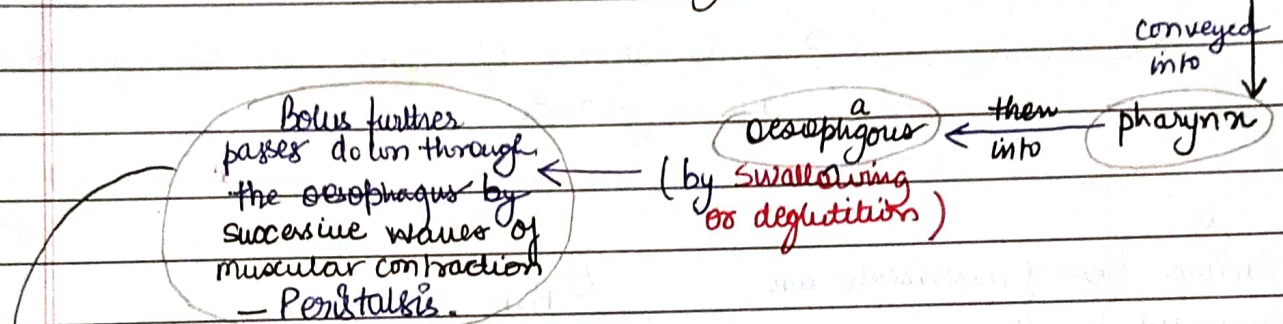 conveyed
into
pharynx
then
into
a
oesophgous
(by swallowing
or deglutition)
Bolus further
passes down through
the oesophagus by
successive waves of
muscular contraction
– Peristalsis.